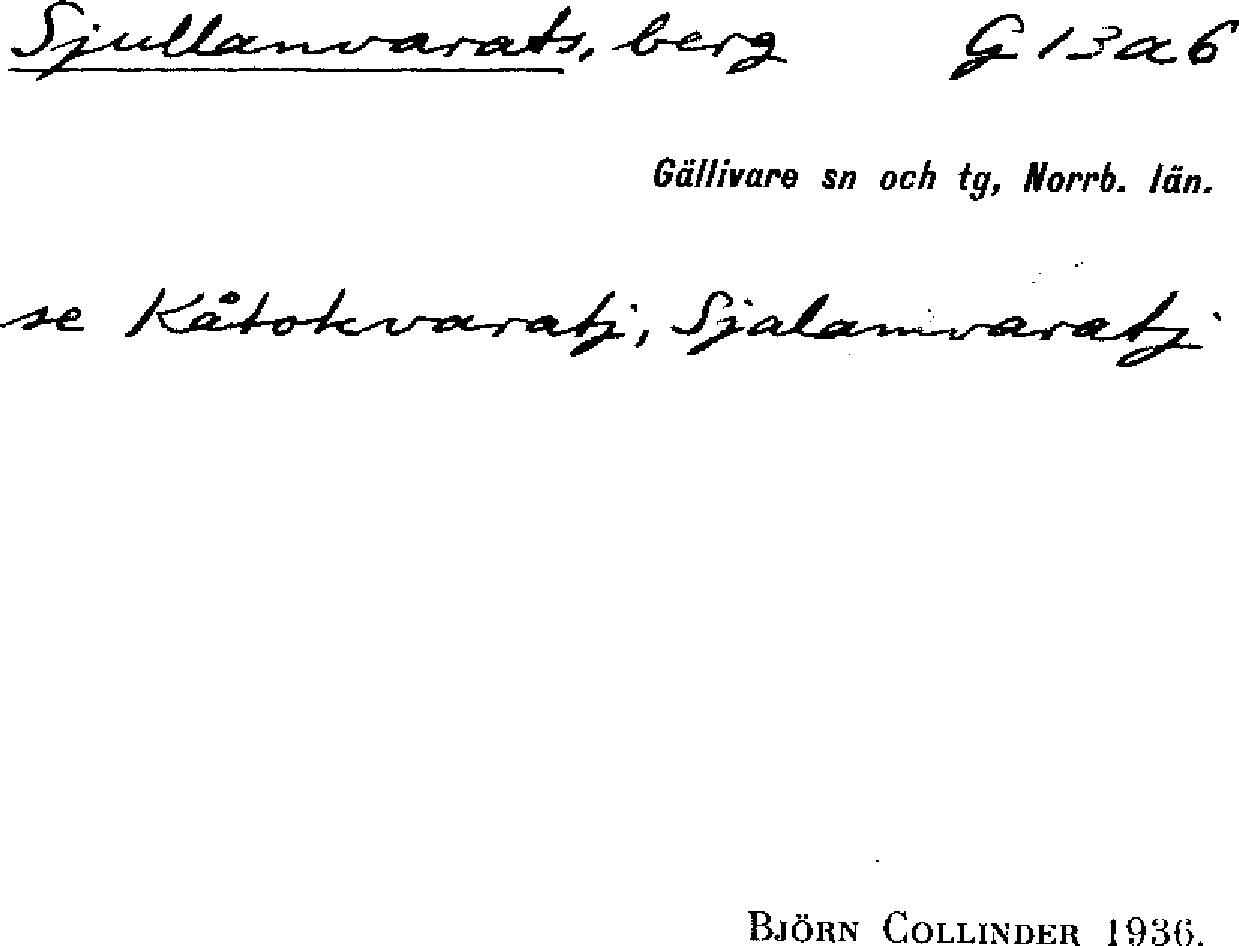 Sjullanvarats, berg G 13 a 6
Gällivare sn och tg, Norrb. län.
se Kåtokvaratj, Sjalamvaratj
BJÖRN COLLINDER 1936.